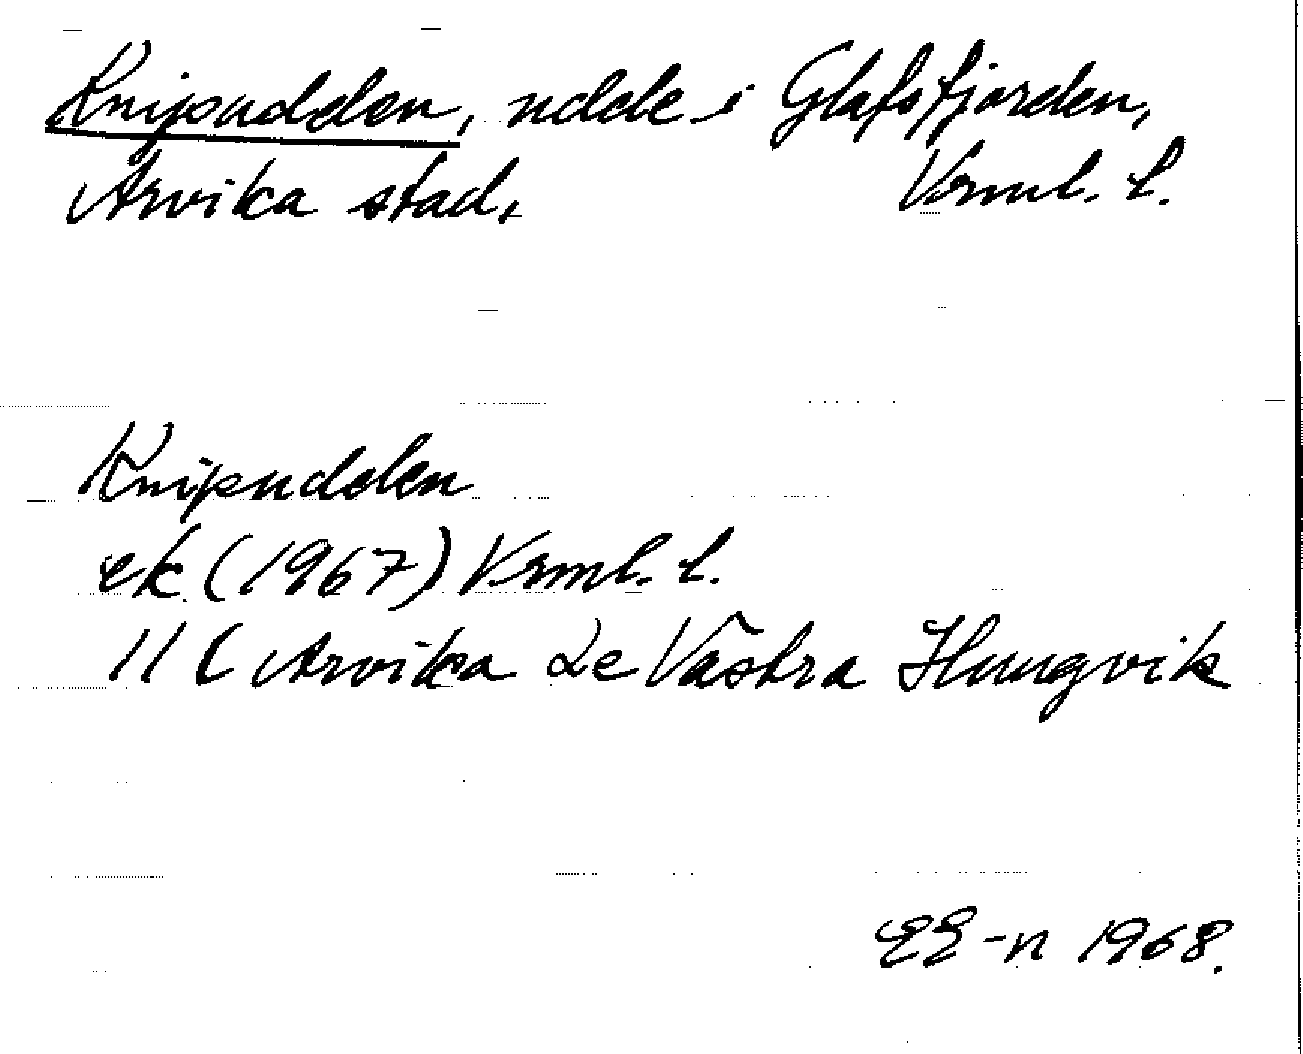 Knipudden, udde i Glafsfjorden,
Arvika stad, Vrml. l.
Knipudden
ek (1967) Vrml. l.
11 C Arvika Västra Hungvik
EE-n 1968.